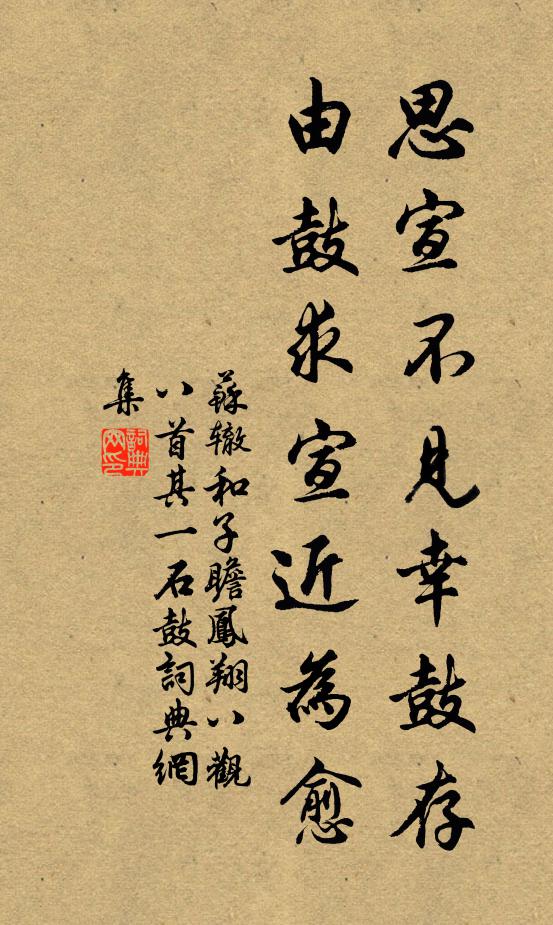 思宣不見幸鼓存
由鼓求宣近為愈
蘇辙和子瞻鳳翔八觀
八首其一石鼓詞典網
集
詞典
网印